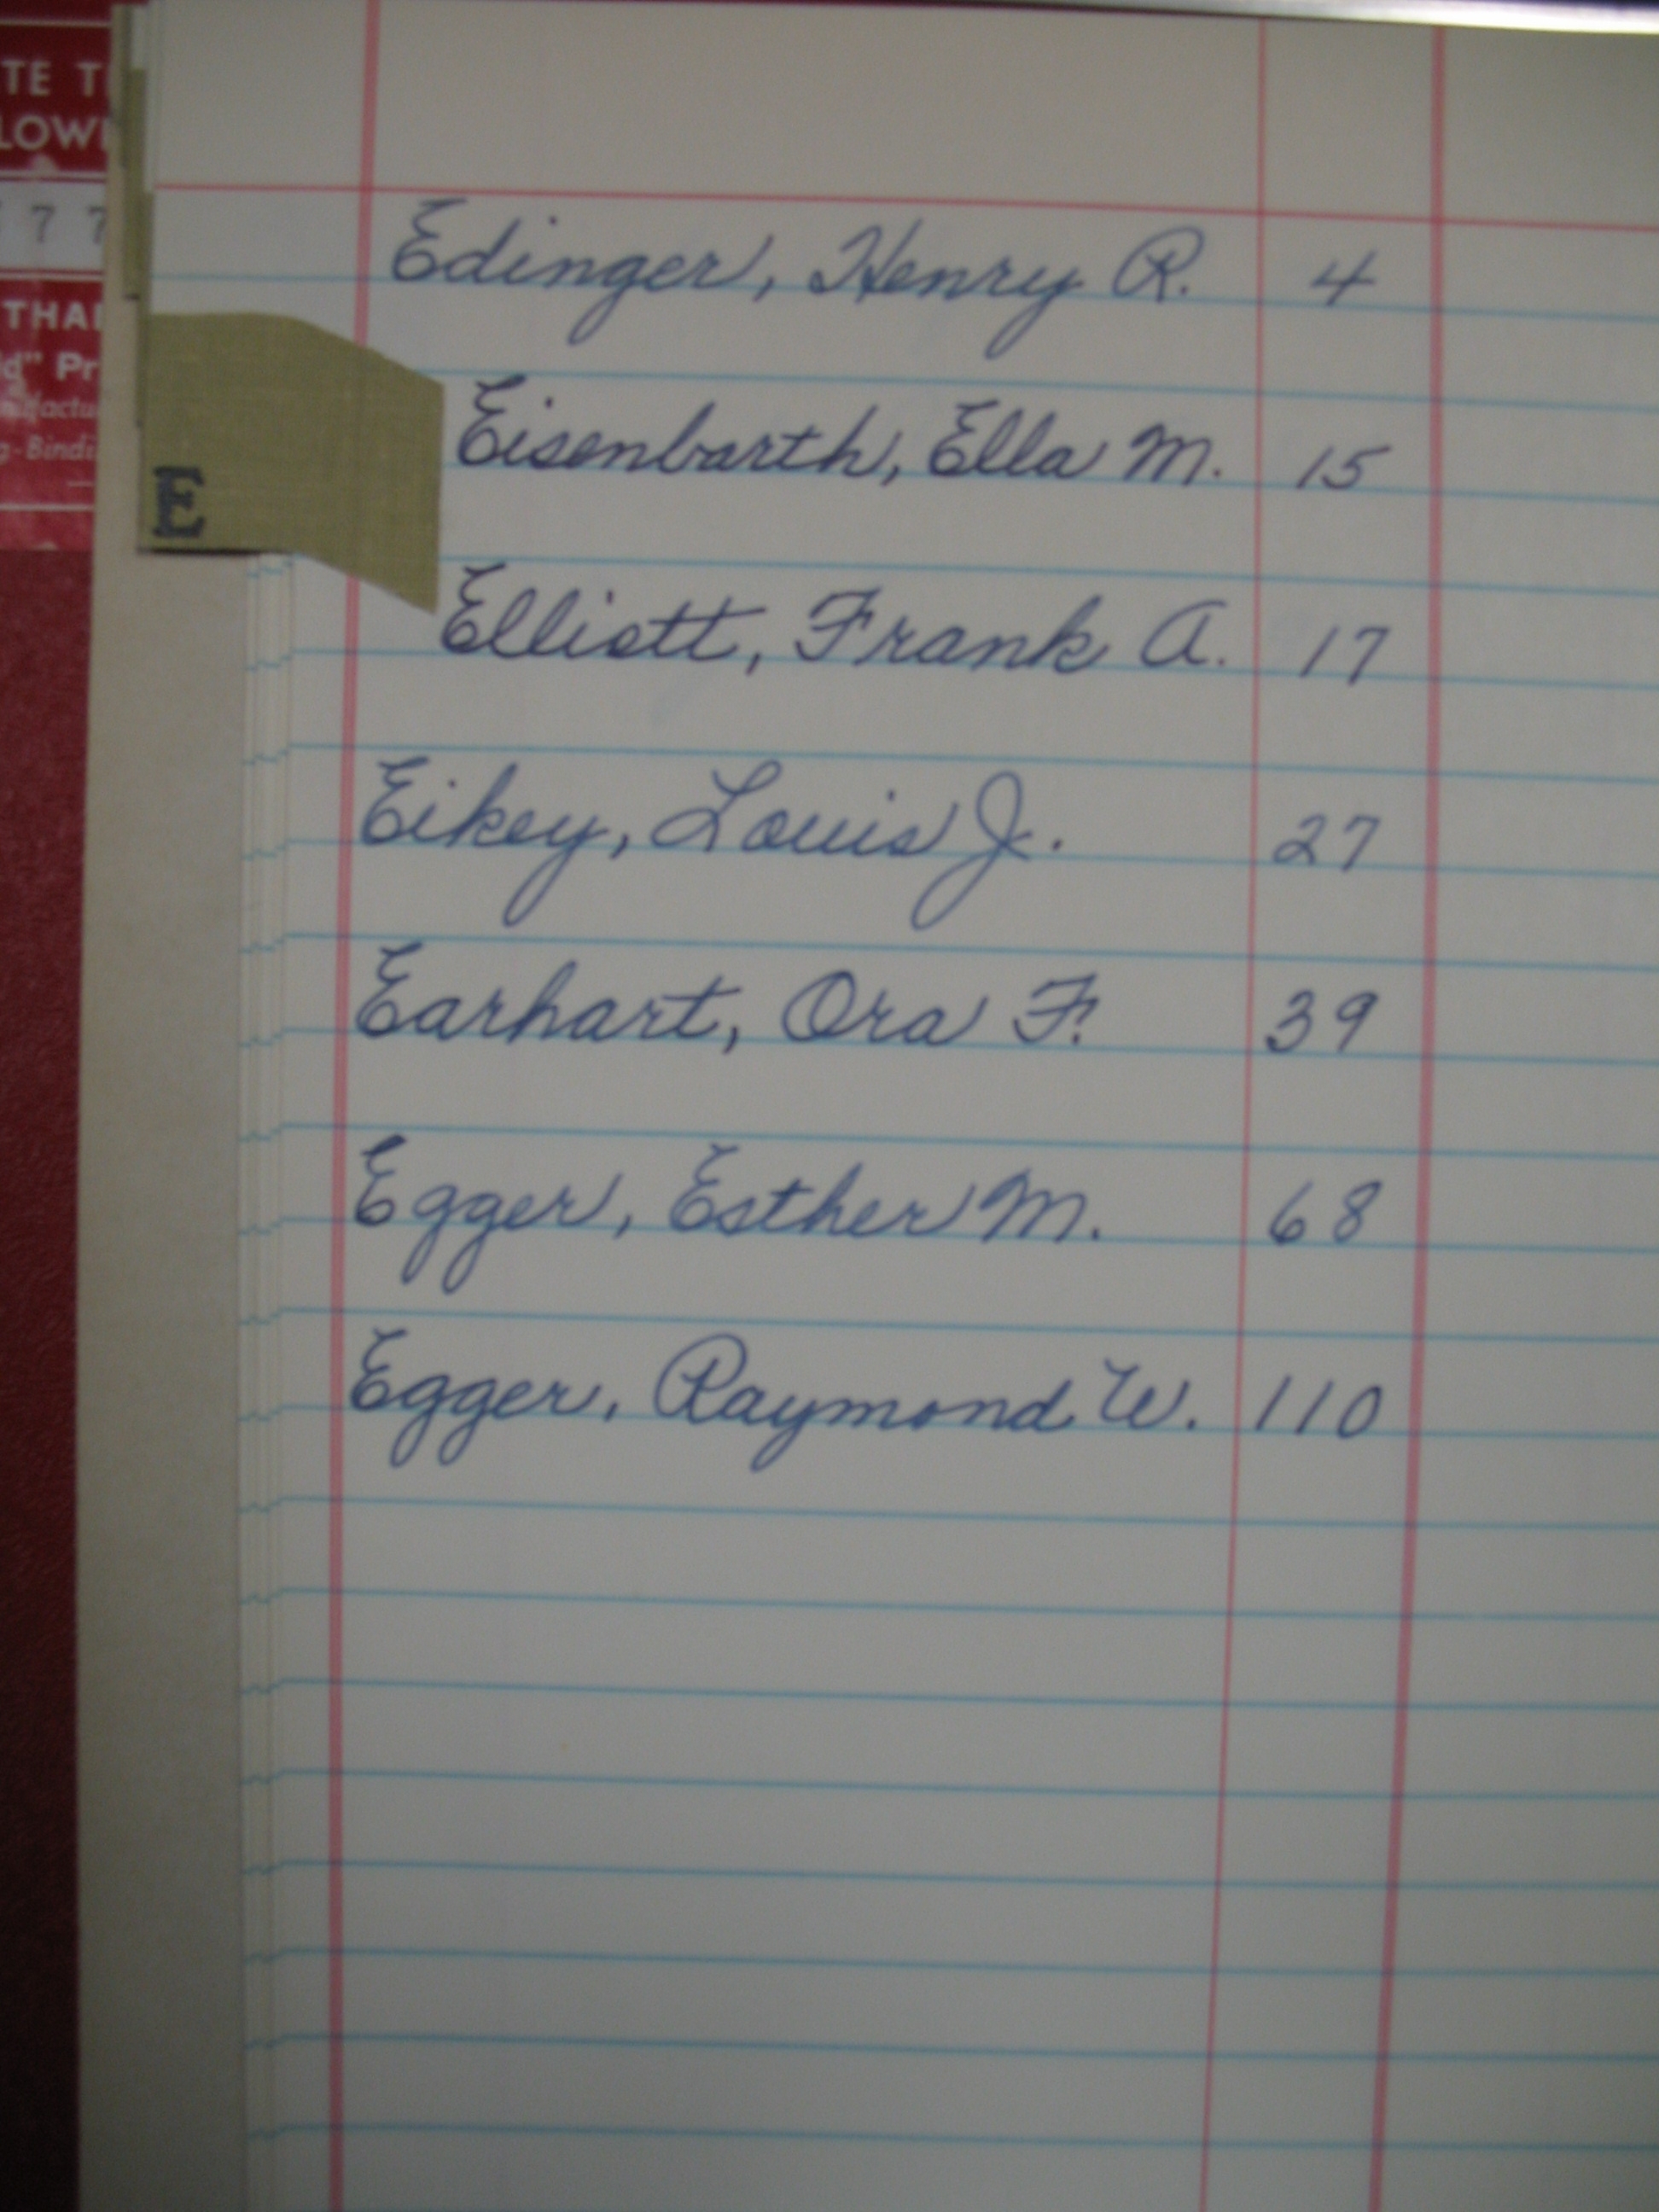 TE T
LOW
7 7
THA
d" Pr
g-Bindi
E
Edinger, Henry R. 4
Eisenbarth, Ella M. 15
Elliott, Frank A. 17
Eikey, Louis J. 27
Earhart, Ora F. 39
Egger, Esther M. 68
Egger, Raymond W. 110